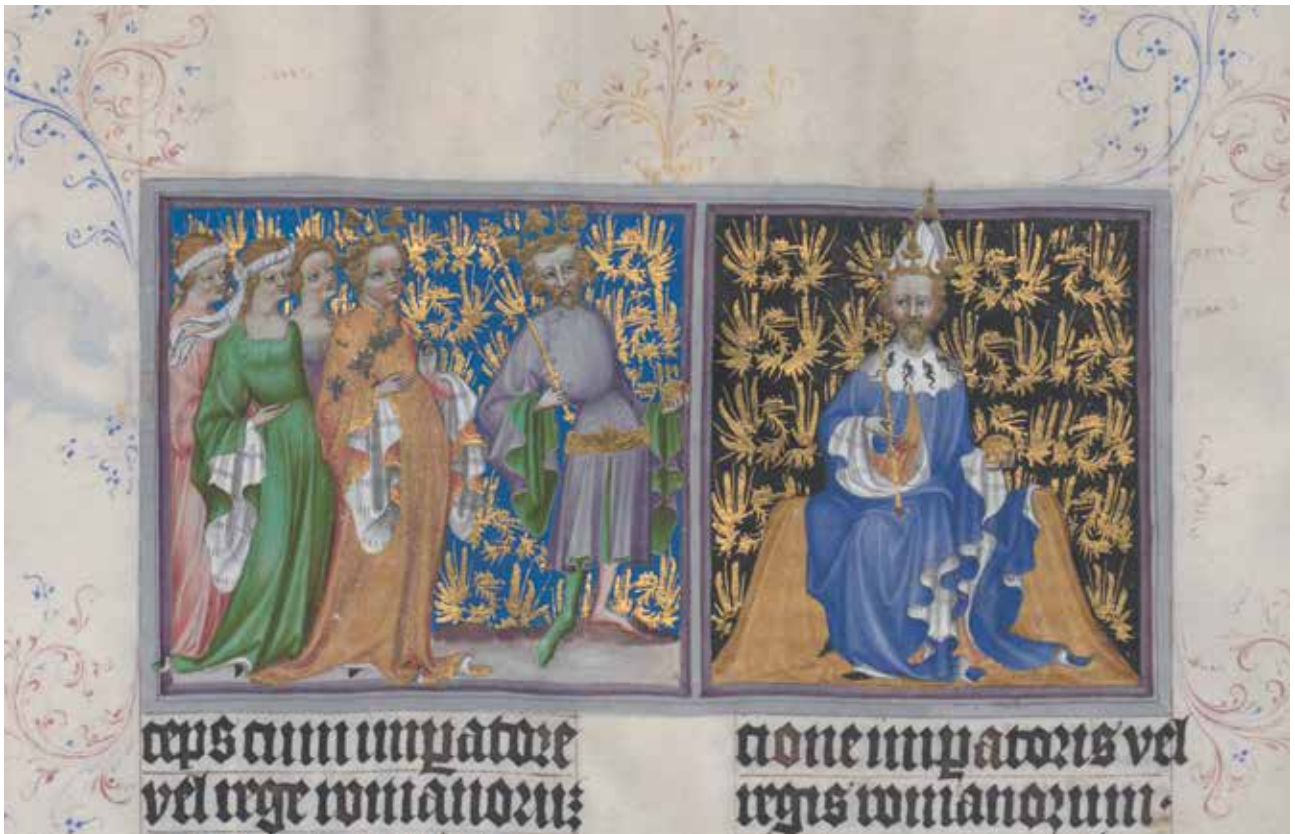 ceps cum imꝑatore
vel rege romanoru:
cione imꝑatoris vel
regis romanorum·